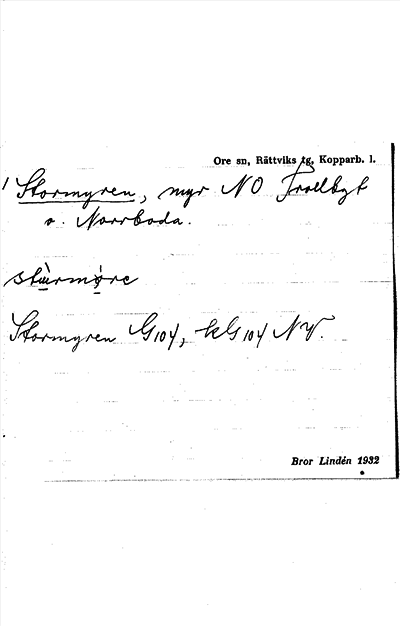 Ore sn, Rättviks tg, Kopparb. l.
1 Stormyren, myr NO Trollbyt
o. Norrboda.
Stormyren G104, kG104 NV.
Bror Lindén 1932